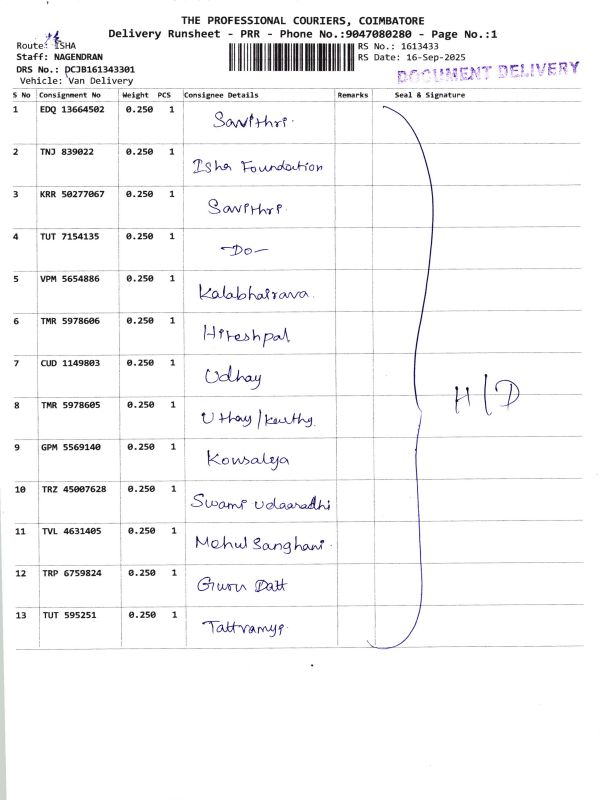 THE PROFESSIONAL COURIERS, COIMBATORE
Delivery Runsheet - PRR - Phone No.:9047080280 - Page No.:1
Route: ISHA
RS No.: 1613433
Staff: NAGENDRAN
RS Date: 16-Sep-2025
DRS No.: DCJB161343301
Vehicle: Van Delivery
DOCUMENT DELIVERY
S No Consignment No Weight PCS Consignee Details Remarks Seal & Signature
1 EDQ 13664502 0.250 1 Savithri.
2 TNJ 839022 0.250 1 Isha Foundation
3 KRR 50277067 0.250 1 Savithri.
4 TUT 7154135 0.250 1 -Do-
5 VPM 5654886 0.250 1 Kalabhairava.
6 TMR 5978606 0.250 1 Hiteshpal
7 CUD 1149803 0.250 1 Udhay
H/D
8 TMR 5978605 0.250 1 Uthay/
9 GPM 5569140 0.250 1 Kousalya
10 TRZ 45007628 0.250 1 Swami Udaaradhi
11 TVL 4631405 0.250 1 Mehul Sanghani.
12 TRP 6759824 0.250 1 Guru Datt
13 TUT 595251 0.250 1